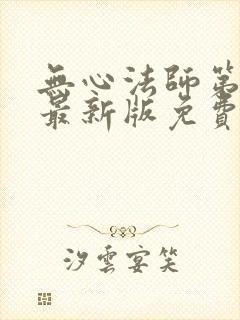 無心法師第
最新版免費
汐雲宴笑